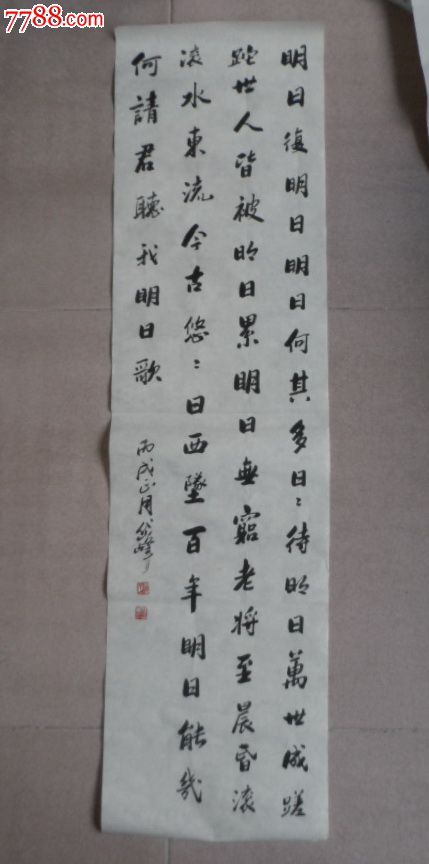 7788.com
明日復明日明日何其多日〻待明日萬世成蹉
跎世人皆被明日累明日無窮老將至晨昏滾
滾水東流今古悠〻日西墜百年明日能幾
何請君聽我明日歌
丙戌正月